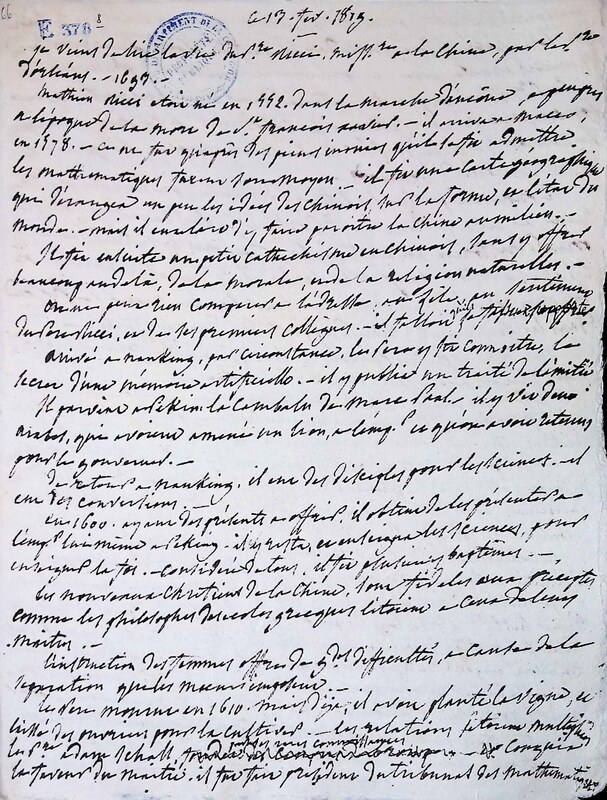 66
E 378 8
ce 13. fev. 1813.
je viens de lire la vie du p.re Ricci, miss.re a la Chine, par le p.re
d'orléans. - 1693. -
Mathieu Ricci etoit né en 1552. dans la marche d'ancône, a peu près
a l'époque de la mort de s.t françois xavier. - il arriva a macao,
en 1578. - ce ne fut qu'après des peines inouies qu'il se fit admettre
les mathematiques furent son moyen. - il fit une carte geographique
qui dérangea un peu les idées des chinois, sur la forme, et l'état du
monde. - mais il eut l'art d'y faire paroître la chine au milieu. -
Il fit ensuite un petit cathechisme en chinois, sans y offrir
beaucoup au delà, de la morale, et de la religion naturelles. -
on ne peut rien comparer a l'adresse, au zèle, au sentiment
du Pere Ricci, et de ses premiers collegues. - il falloit
arrivé a nanking, par circonstance, le Pere y fit connoitre, le
secret d'une mémoire artificielle. - il y publia un traité de l'amitié
Il parvint a Pekin. la Cambalu de marc Paul. - il y vit deux
arabes, qui avoient amené un lion, a l'emp.r et qu'on avoit retenus
pour le gouverner. -
de retour a nanking, il eut des disciples pour les sciences. - il
eut des conversions. -
en 1600. ayant des présents a offrir, il obtint de les présenter a
l'emp.r lui même a Peking. - il y resta, et enseigna les sciences, pour
enseigner la foi. - considéré de tous, il fit plusieurs baptêmes. -
Les nouveaux chrétiens de la Chine, sont fideles aux préceptes
comme les philosophes des ecoles grecques l'etoient a ceux de leurs
maitres. -
l'instruction des femmes offre de g.des difficultés, a cause de la
separation que les moeurs imposent. -
le Pere mourut en 1610. mais déjà, il avoit planté la vigne, et
laissé des ouvriers pour la cultiver - les relations s'etoient multipliées
le P.re adam Schall, - conquit
la faveur du maitre. il fut fait président du tribunal des mathematiques